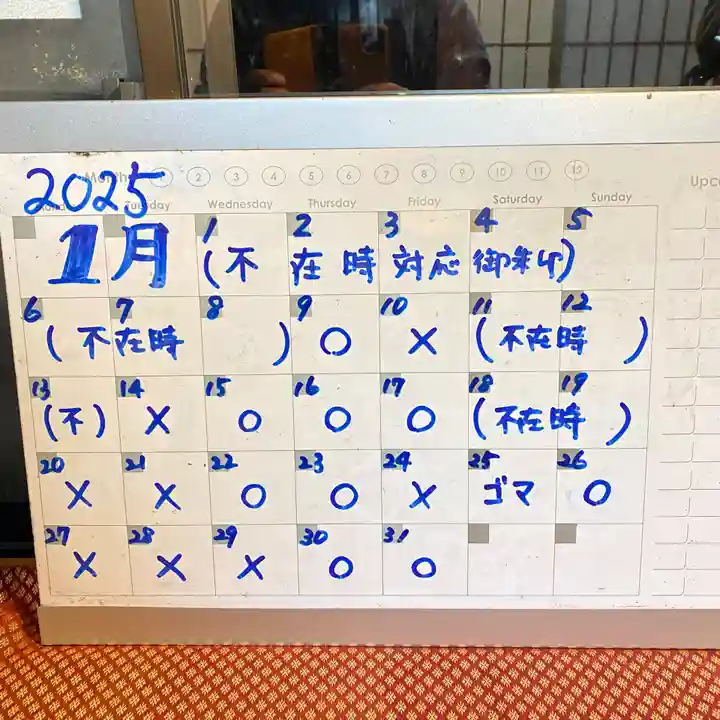 2025
Month 2 3 4 5 6 7 8 9 10 11 12
Wednesday Thursday Friday Saturday Sunday
1月
1 2 3 4 5
(不在時対応御朱印)
6 7 8 9 10 11 12
(不在時 ) ○ × (不在時 )
13 14 15 16 17 18 19
(不) × ○ ○ ○ (不在時 )
20 21 22 23 24 25 26
× × ○ ○ × ゴマ ○
27 28 29 30 31
× × × ○ ○